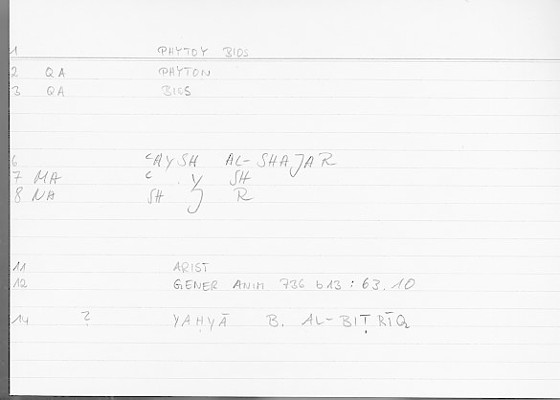 1 PHYTOY BIOS
2 QA PHYTON
3 QA BIOS
6 ʿAYSH AL-SHAJAR
7 MA ʿ Y SH
8 NA SH J R
11 ARIST
12 GENER ANIM 736 b13 : 63.10
14 ? YAḤYĀ B. AL-BIṬRĪQ